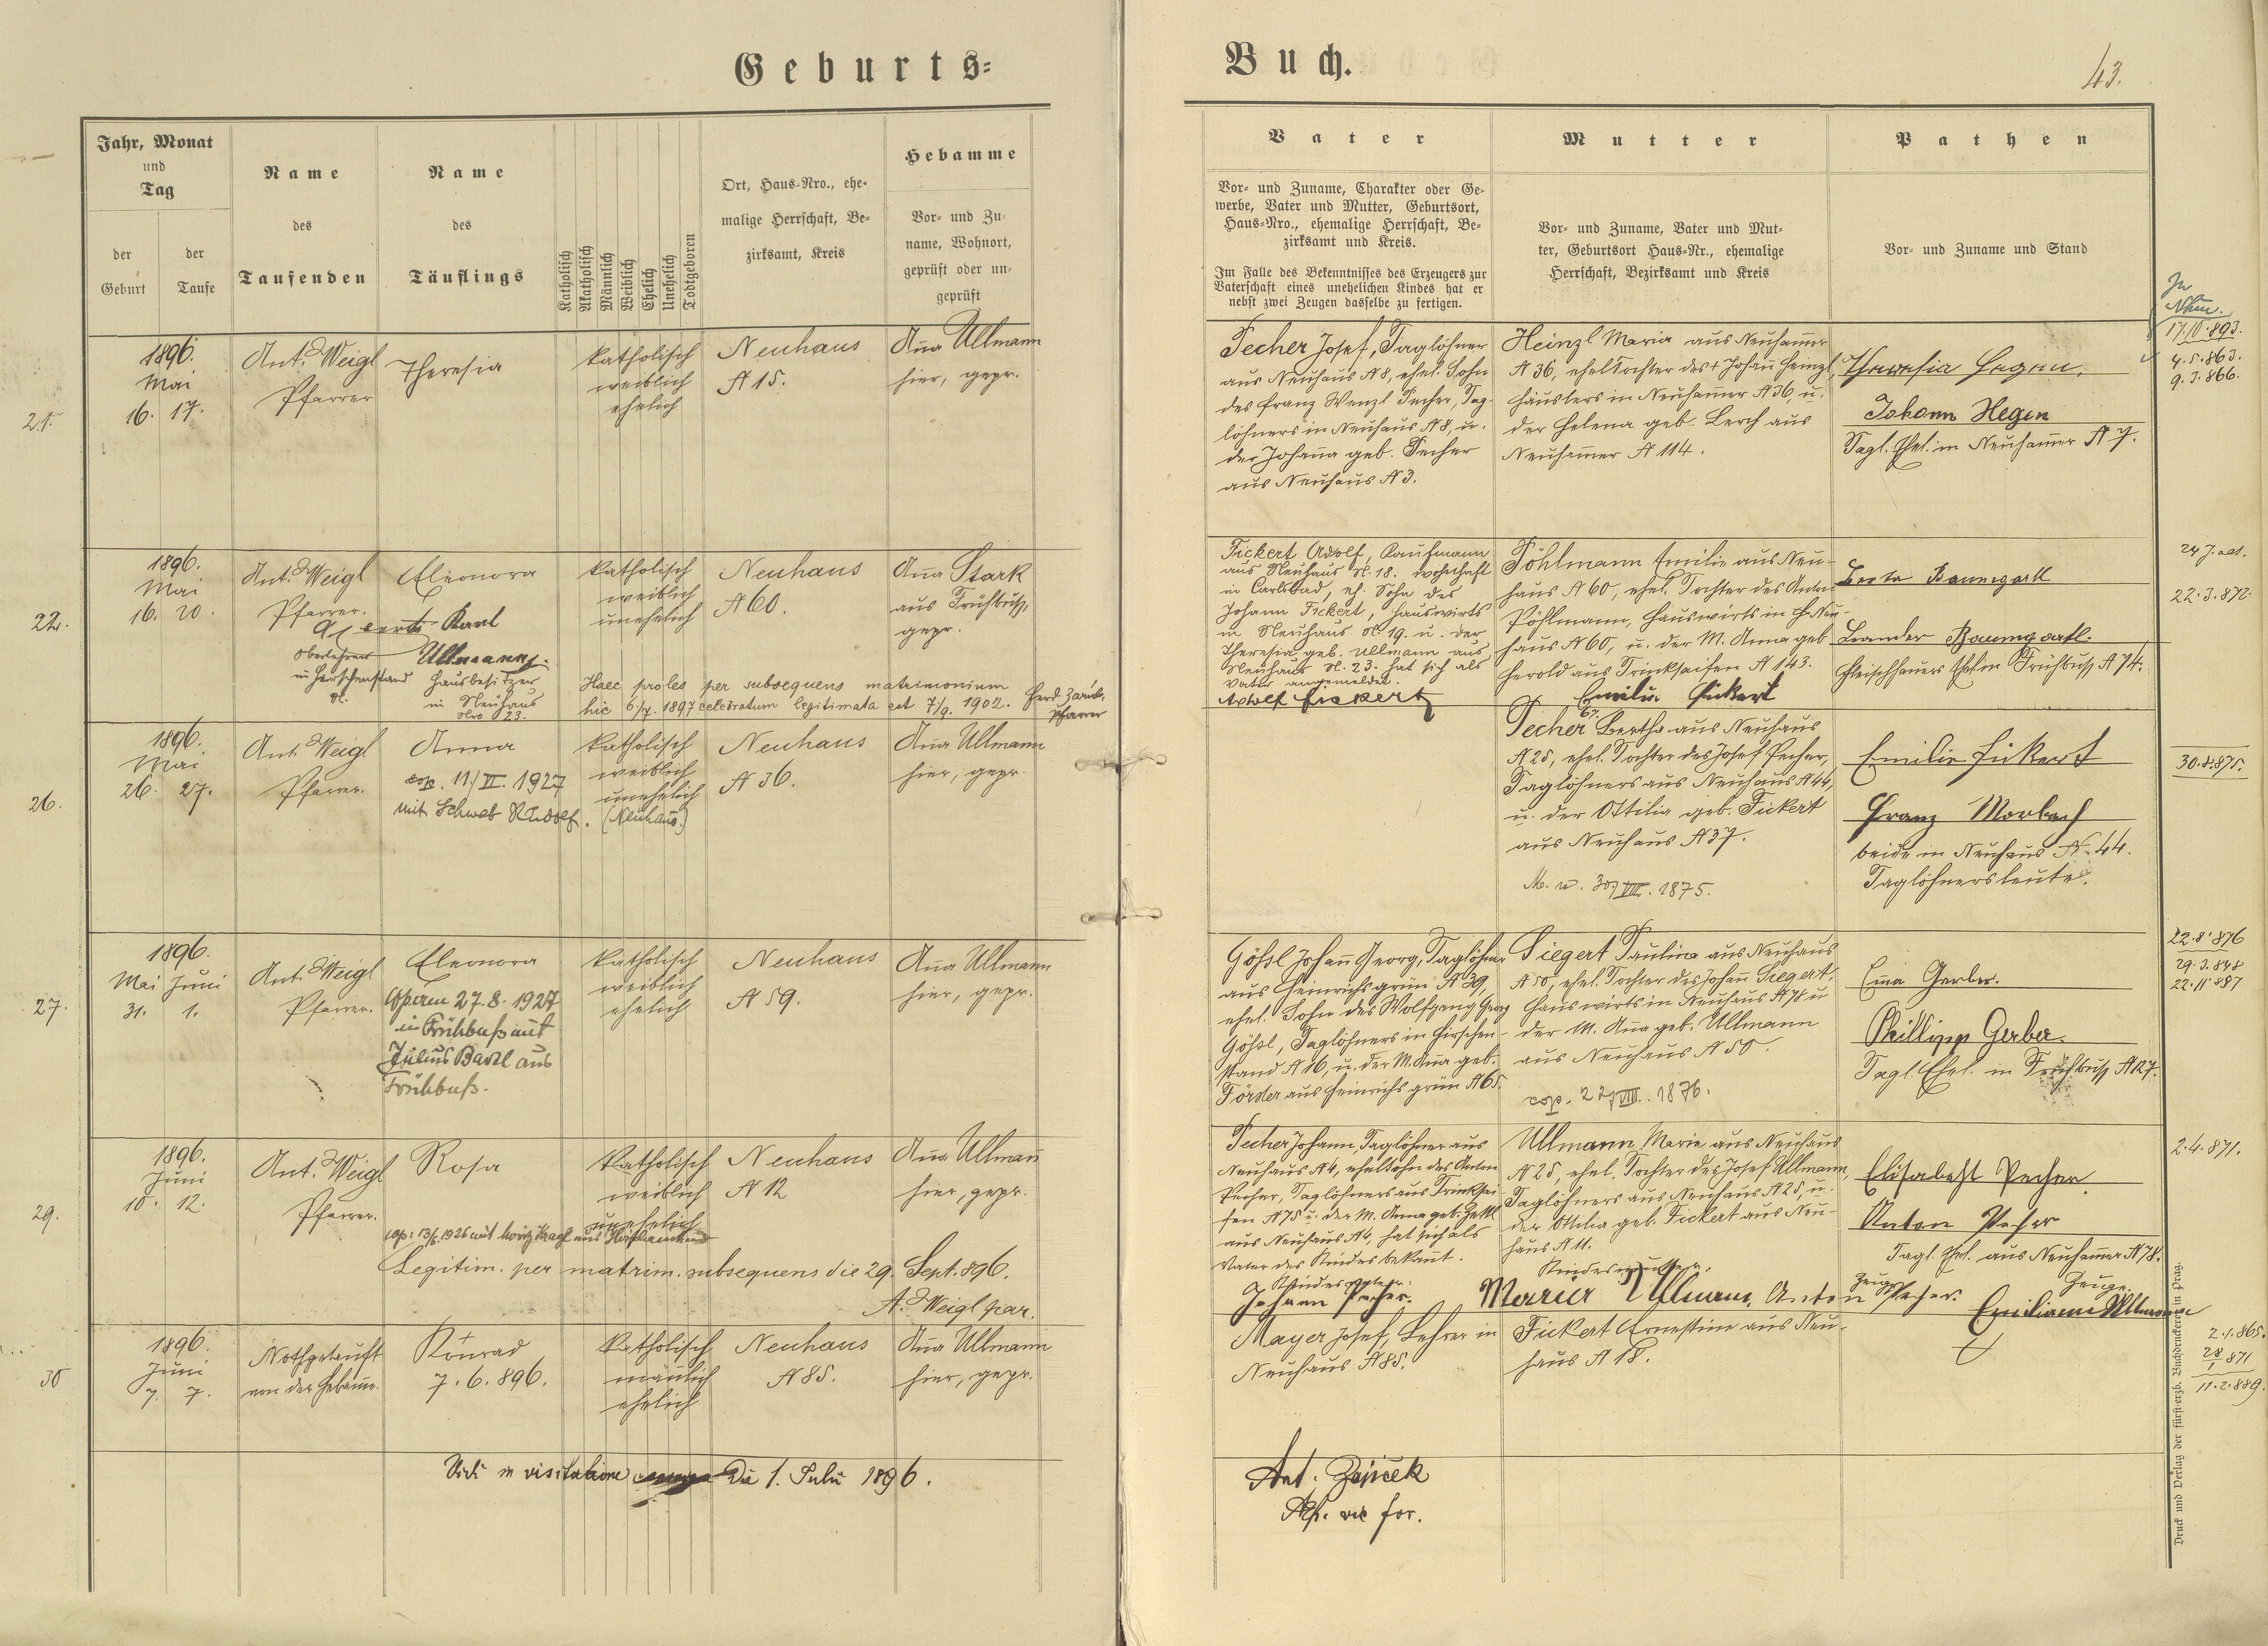 Geburts=
Buch.
43.
Jahr, Monat
und
Tag
der
Geburt
der
Taufe
Name
des
Taufenden
Name
des
Täuflings
Katholisch
Akatholisch
Männlich
Weiblich
Ehelich
Unehelich
Todtgeboren
Ort, Haus-Nro., ehe-
malige Herrschaft, Be-
zirksamt, Kreis
Hebamme
Vor- und Zu-
name, Wohnort,
geprüft oder un-
geprüft
Vater
Vor- und Zuname, Charakter oder Ge-
werbe, Vater und Mutter, Geburtsort,
Haus-Nro., ehemalige Herrschaft, Be-
zirksamt und Kreis.
Im Falle des Bekenntnisses des Erzeugers zur
Vaterschaft eines unehelichen Kindes hat er
nebst zwei Zeugen dasselbe zu fertigen.
Mutter
Vor- und Zuname, Vater und Mut-
ter, Geburtsort Haus-Nr., ehemalige
Herrschaft, Bezirksamt und Kreis
Pathen
Vor- und Zuname und Stand
1896.
Mai
16. 17.
Ant. Weigl
Pfarrer
Theresia
katholisch
weiblich
ehelich
Neuhaus
N 15.
Aña Ullmann
hier, gepr.
Pecher Josef, Taglöhner
aus Neuhaus N 8, ehel. Sohn
des Franz Wenzl Pecher, Tag-
löhners in Neuhaus N 8, u.
der Johaña geb. Pecher
aus Neuhaus N 3.
Heinzl Maria aus Neuham̄er
N 36, ehel. Tochter des + Johañ Heinzl,
Häuslers in Neuham̄er N 36, u.
der Helena geb. Lerch aus
Neuham̄er N 114.
Theresia Hegen.
Johann Hegen
Tagl. Ehel. in Neuham̄er N 7.
17.10.893.
4.5.863.
9.3.866.
22.
1896.
Mai
16. 20.
Ant. Weigl
Pfarrer.
Eleonora
Karl
Oberlehrer
in Hirschenstand
Ullmann
Hausbesitzer
in Neuhaus
Nro 23.
katholisch
weiblich
unehelich
Neuhaus
N 60.
Aña Stark
aus Frühbuß,
gepr.
Haec proles per subsequens matrimonium
hic 6/7. 1897 celebratum legitimata est 7/9. 1902. Ferd.
Pfarrer
Fickert Adolf, Kaufmann
aus Neuhaus N. 18. wohnhaft
in Carlsbad, eh. Sohn des
Johann Fickert, Hauswirts
in Neuhaus N. 19. u. der
Theresia geb. Ullmann aus
Neuhaus N. 23. hat sich als
Vater angemeldet.
Adolf Fickert
Pöhlmann Emilie aus Neu-
haus N 60, ehel. Tochter des Anton
Pöhlmann, Hauswirts in Neu-
haus N 60, u. der M. Anna geb.
Herold aus Trinksaifen N 143.
Emilie Fickert
Berta Baumgartl
Leander Baumgartl.
Fleischhauers Ehel. in Frühbuß N 74.
22.3.872.
26.
1896.
Mai
26. 27.
Ant. Weigl
Pfarrer.
Anna
cop. 11/VI. 1927
mit Schwab Rudolf. (Neuhaus.)
katholisch
weiblich
unehelich
Neuhaus
N 36.
Aña Ullmann
hier, gepr.
Pecher Bertha aus Neuhaus
N 25, ehel. Tochter des Josef Pecher,
Taglöhners aus Neuhaus N 44,
u. der Ottilia geb. Fickert
aus Neuhaus N 37.
30/VIII. 1875.
Emilie Fickert
Franz Morbach
beide in Neuhaus N. 44.
Taglöhnersleute.
30.8.875.
27.
1896.
Mai Juni
31. 1.
Ant. Weigl
Pfarrer.
Eleonora
Cop. am 27.8.1927
in Frühbuß mit
Julius Bartl aus
Frühbuß.
katholisch
weiblich
ehelich
Neuhaus
N 59.
Aña Ullmann
hier, gepr.
Gößl Johañ Georg, Taglöhner
aus Heinrichsgrün N 39,
ehel. Sohn des Wolfgang Georg
Gößl, Taglöhners in Hirschen-
stand N 16, u. der M. Aña geb.
Förster aus Heinrichsgrün N 65.
Siegert Paulina aus Neuhaus
N 50, ehel. Tochter des Johañ Siegert,
Hauswirts in Neuhaus N 78 u
der M. Aña geb. Ullmann
aus Neuhaus N 50.
cop. 22/VIII. 1876.
Em̄a Gerber.
Phillipp Gerber.
Tagl. Ehel. in Frühbuß N 27.
22.8.876
29.3.848
22.11.887
29.
1896.
Juni
10. 12.
Ant. Weigl
Pfarrer.
Rosa
katholisch
weiblich
unehelich
Neuhaus
N 12
Aña Ullmañ
hier, gepr.
Legitim. per matrim. subsequens die 29. Sept. 896.
A. Weigl par.
Pecher Johann, Taglöhner aus
Neuhaus N 4, ehel. Sohn des Anton
Pecher, Taglöhners aus Trinksai-
fen N 75 u. der M. Anna geb.
aus Neuhaus N 4, hat sich als
Vater des Kindes bekañt.
Kindesvater:
Johann Pecher.
Ullmann Marie aus Neuhaus
N 25, ehel. Tochter des Josef Ullmann,
Taglöhners aus Neuhaus N 25, u.
der Ottilia geb. Fickert aus Neu-
haus N 11.
Kindesmutter:
Maria Ullmann.
Elisabeht Pecher.
Anton Pecher
Tagl. Ehel. aus Neuham̄er N 78.
Zeuge
Anton Pecher.
Zeuge
2.4.871.
30
1896.
Juni
7. 7.
Nothgetauft
von der Hebam̄e.
Konrad
+
7.6.896.
katholisch
mäñlich
ehelich
Neuhaus
N 85.
Aña Ullmann
hier, gepr.
Mayer Josef, Lehrer in
Neuhaus N 85.
Fickert Ernestine aus Neu-
haus N 18.
2.1.865.
11.2.889.
Vidi in visitatione die 1. Julii 1896.
Ant. Zajíček
Druck und Verlag der fürst-erzb. Buchdruckerei in Prag.